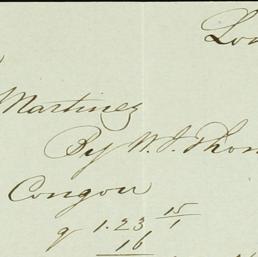 Lon
Martinez
By W. J. Thom
Congou
g 1.23 15/1
16